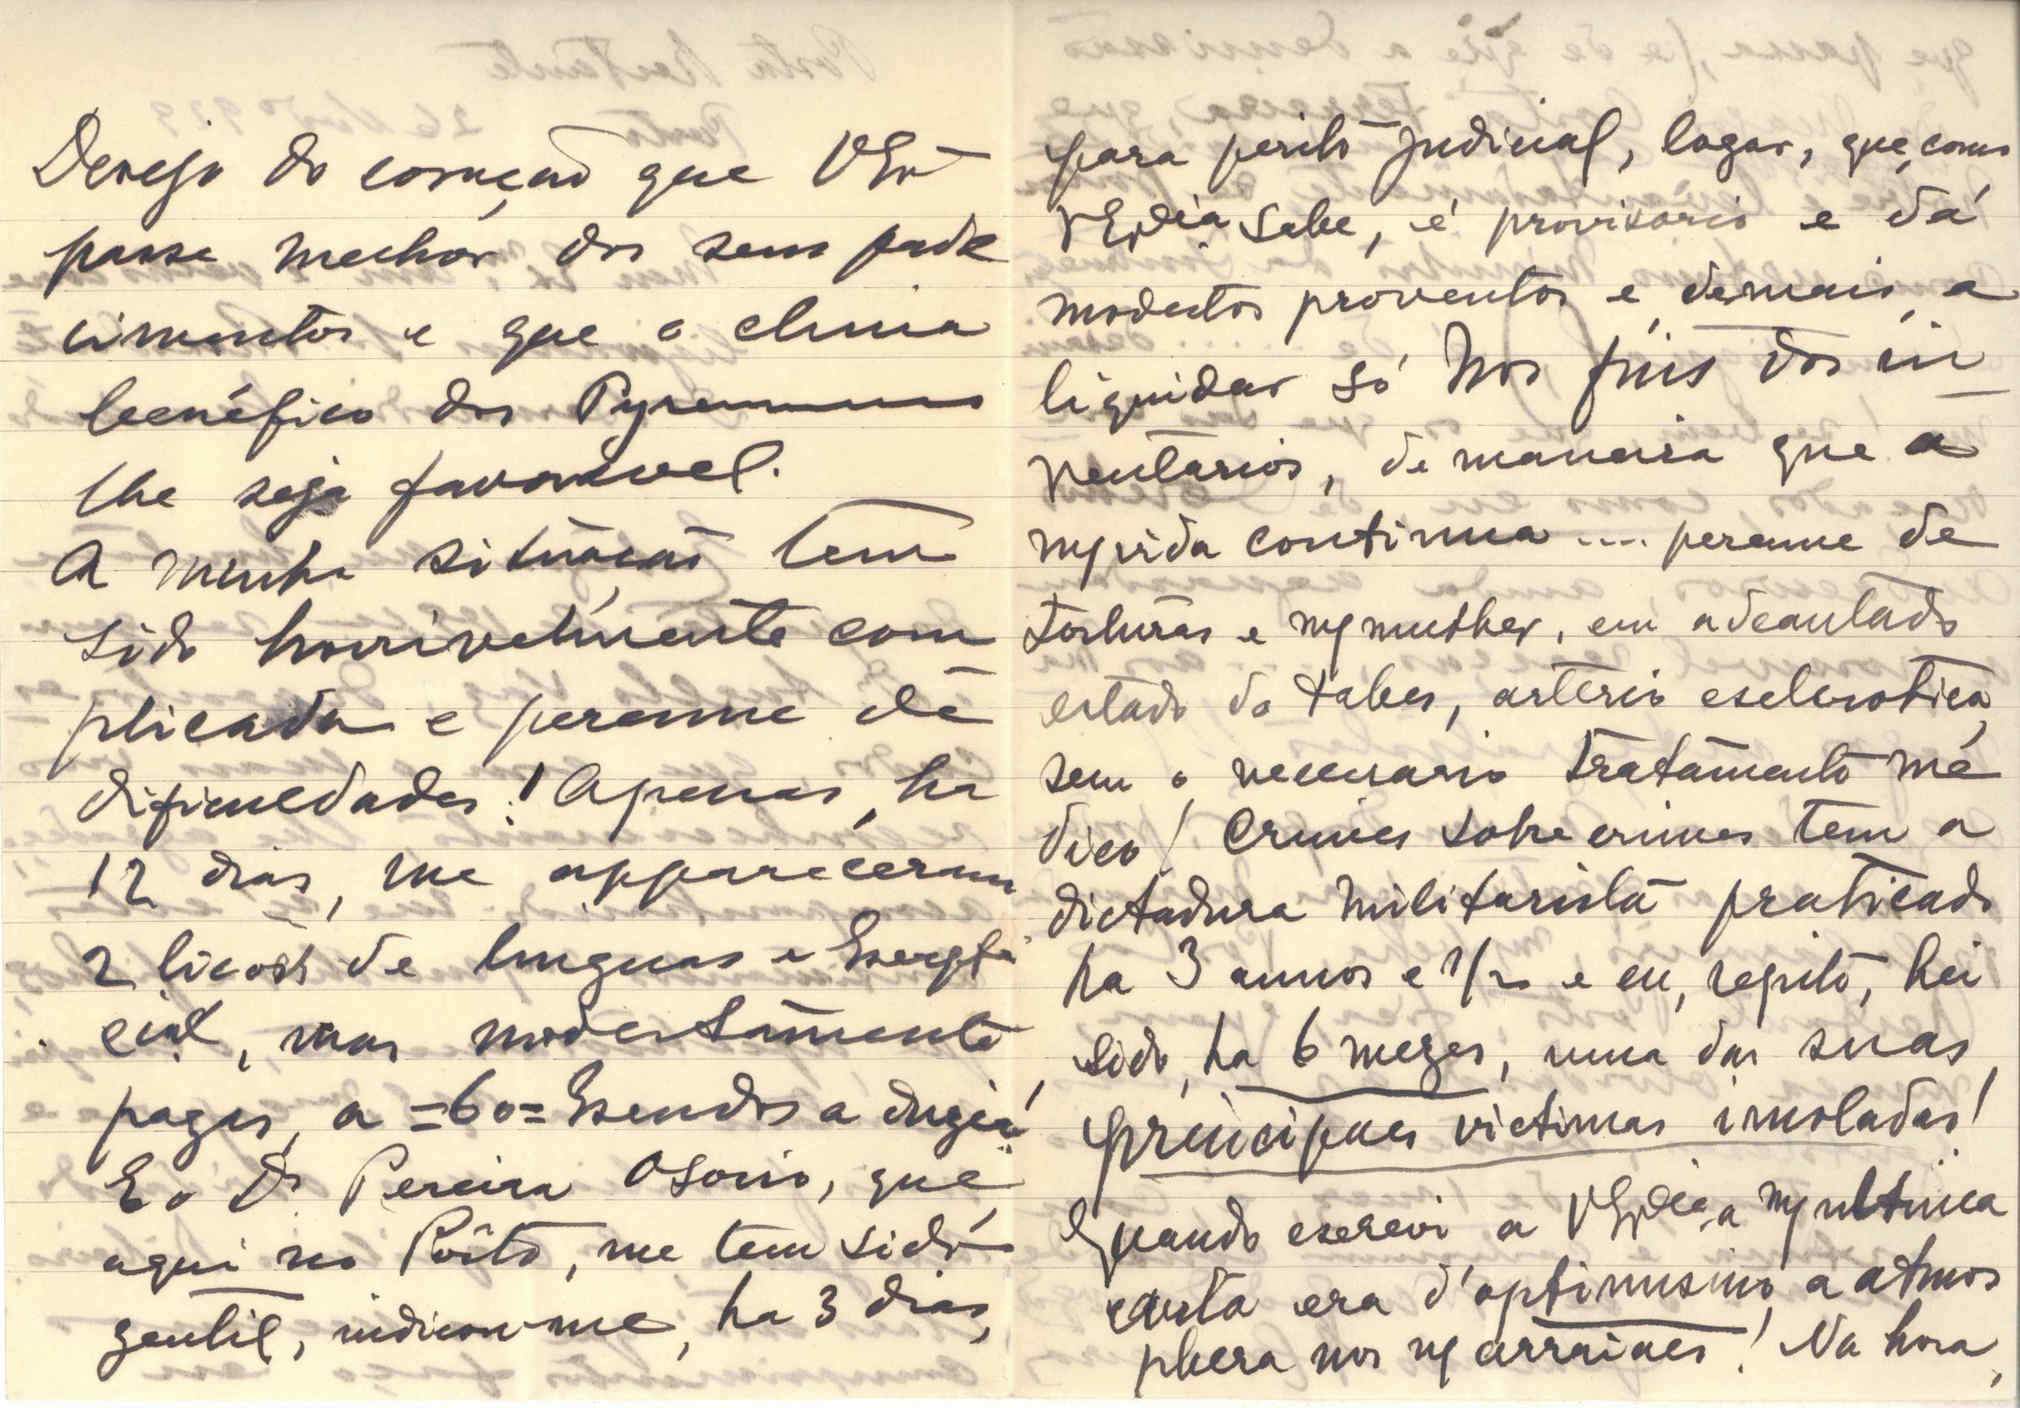 Desejo do coração que VEx^a
passe melhor dos seus pade
cimentos e que o clima
benéfico dos Pyreneus
lhe seja favoravel.
A minha situação tem
sido horrivelmente com
plicada e perenne de
dificuldades! Apenas, ha
12 dias, me appareceram
2 licões de linguas e
cial, mas modestamente
pagas, a =60= Escudos a
E o Dr Pereira Osorio, que,
aqui no Pôrto, me tem sido
gentil, indicou-me, ha 3 dias,
para perito judicial, logar, que, como
VEx^cia sabe, é provisorio e dá
modestos proventos e, demais, a
liquidar só nos fins dos in
ventarios, de maneira que a
m/vida continua .... perenne de
torturas e m/mulher, em adeantado
estado de tabes, arterio esclerotica,
sem o necessario tratamento mé
dico! Crimes sobre crimes tem a
dictadura militarista praticado
ha 3 annos e 1/2 e eu, repito, hei
sido, ha 6 mezes, uma das suas
principaes victimas imoladas!
Quando escrevi a VEx^cia a m/ultima
carta era d'optimismo a atmos
phera nos n/ arraiaes! Na hora,